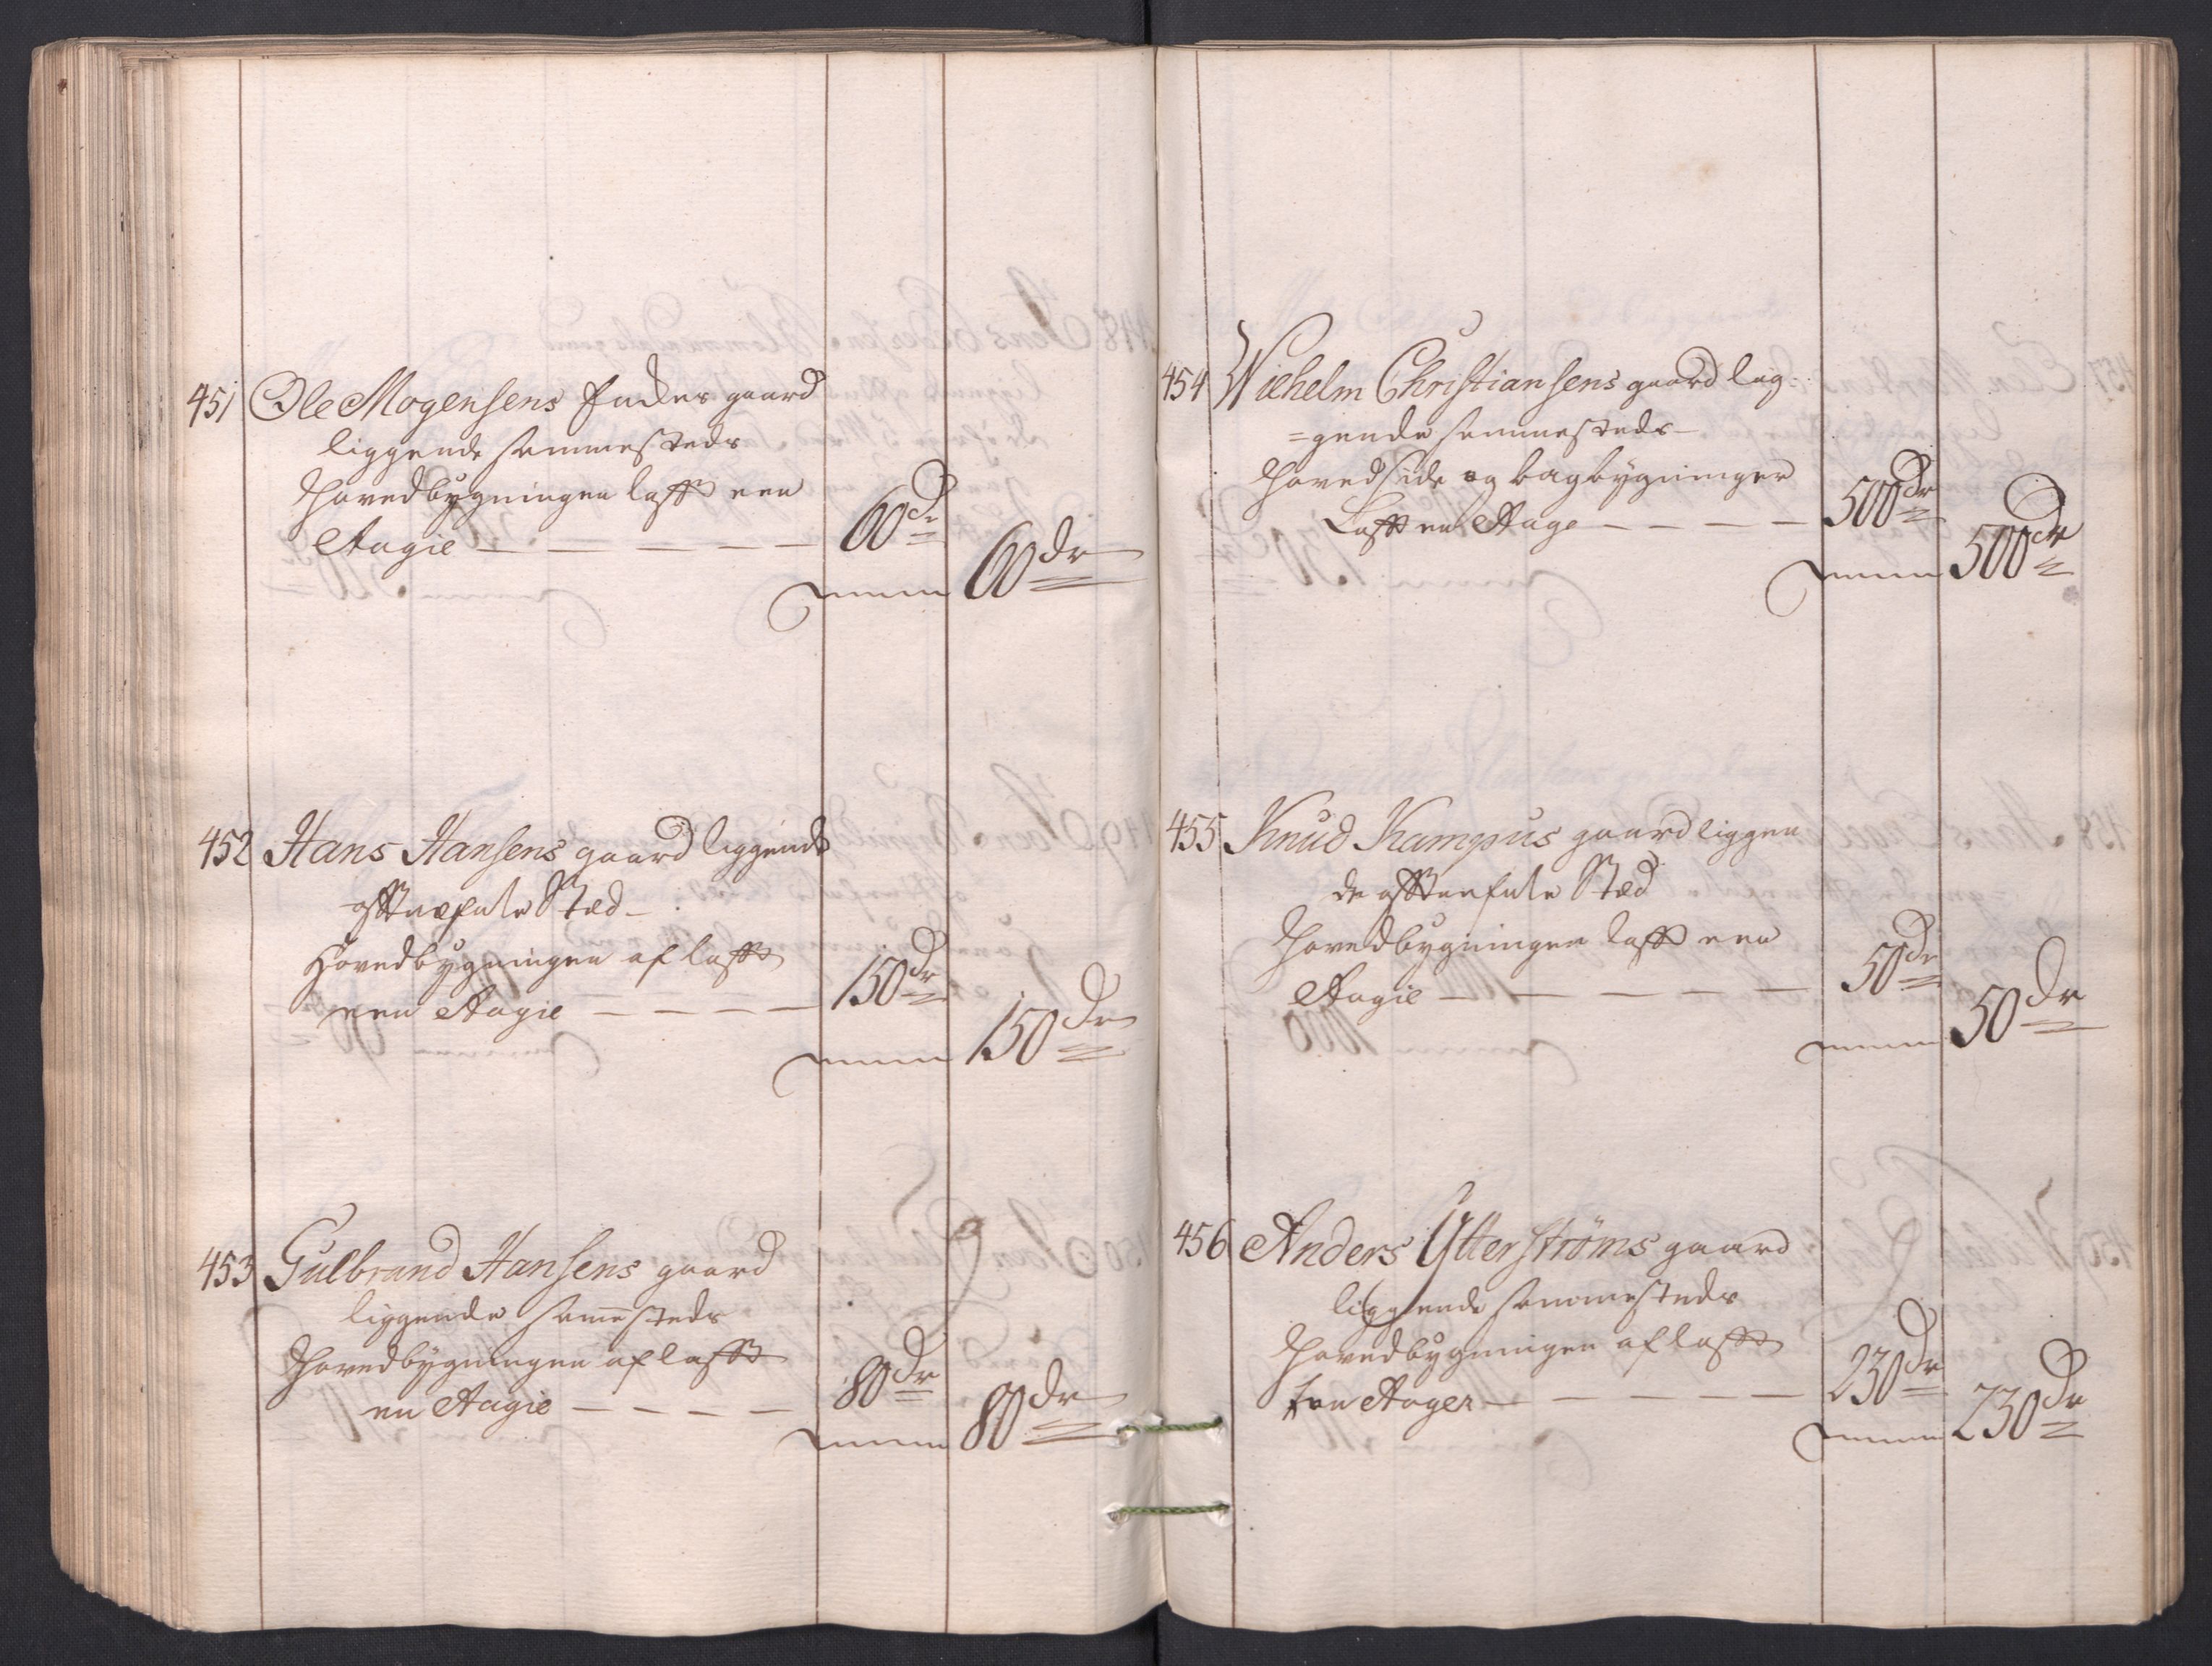 451 Ole Mogensens Enckes gaard
liggende sammesteds
Hovedbygningen lafft een
Etagie — — — — — 60 dr
Summa 60 dr
452 Hans Hansens gaard liggende
Sted
Hovedbygningen af lafft
een Etagie — — — — 150 dr
Summa 150 dr
453 Gulbrand Hansens gaard
liggende samesteds
Hovedbygningen af lafft
en Etagie — — — — 80 dr
Summa 80 dr
454 Wilhelm Christiansens gaard lig=
=gende sammesteds
Hoved side og bagbygninger
Lafft en Etage — — — — 500 dr
Summa 500 dr
455 Knud Kampus gaard liggen
de Sted
Hovedbygningen lafft een
Etagie — — — — — 50 dr
Summa 50 dr
456 Anders Ytterstrøms gaard
liggende sammesteds
Hovedbygningen af lafft
toe Etager — — — — — 230 dr
Summa 230 dr